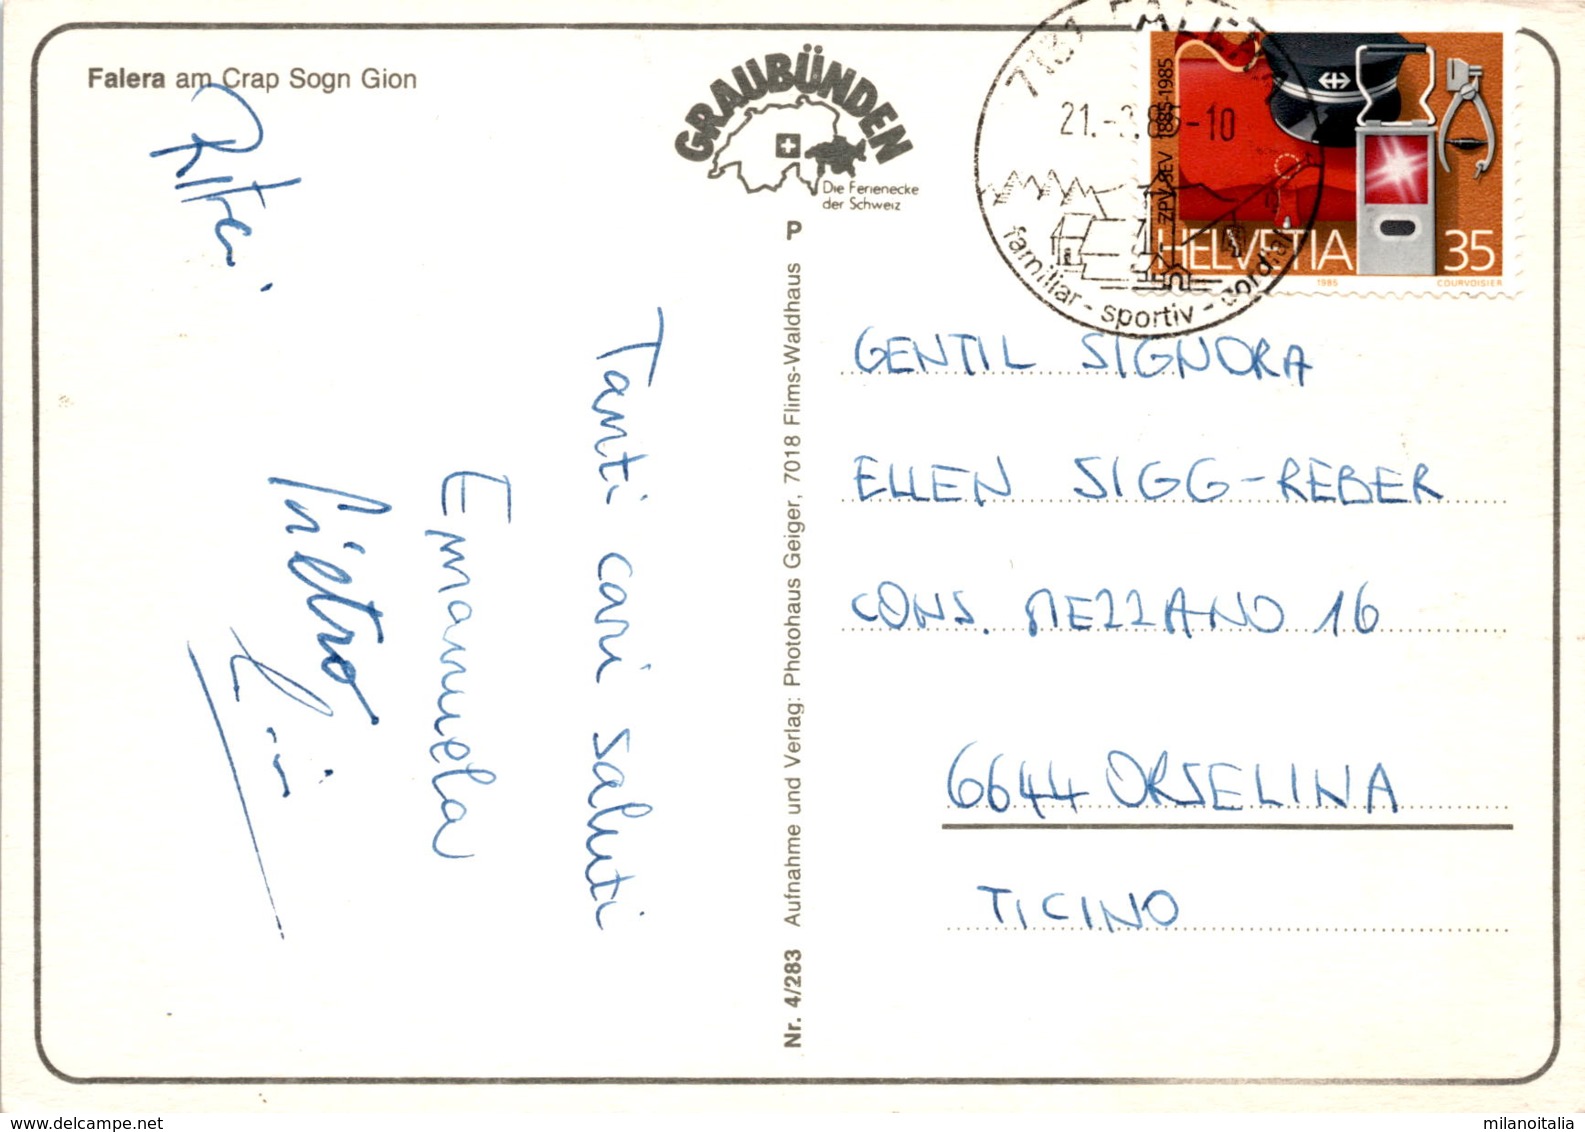 Falera am Crap Sogn Gion
GRAUBÜNDEN
Die Ferienecke
der Schweiz
21. 10
familiar - sportiv - cordial
ZPV SEV 1885-1985
HELVETIA 35
1985 COURVOISIER
P
Nr. 4/283 Aufnahme und Verlag: Photohaus Geiger, 7018 Flims-Waldhaus
Tanti cari saluti
Emanuela
Pietro
GENTIL SIGNORA
ELLEN SIGG-REBER
CONS. MEZZANO 16
6644 ORSELINA
TICINO
www.delcampe.net
milanoitalia